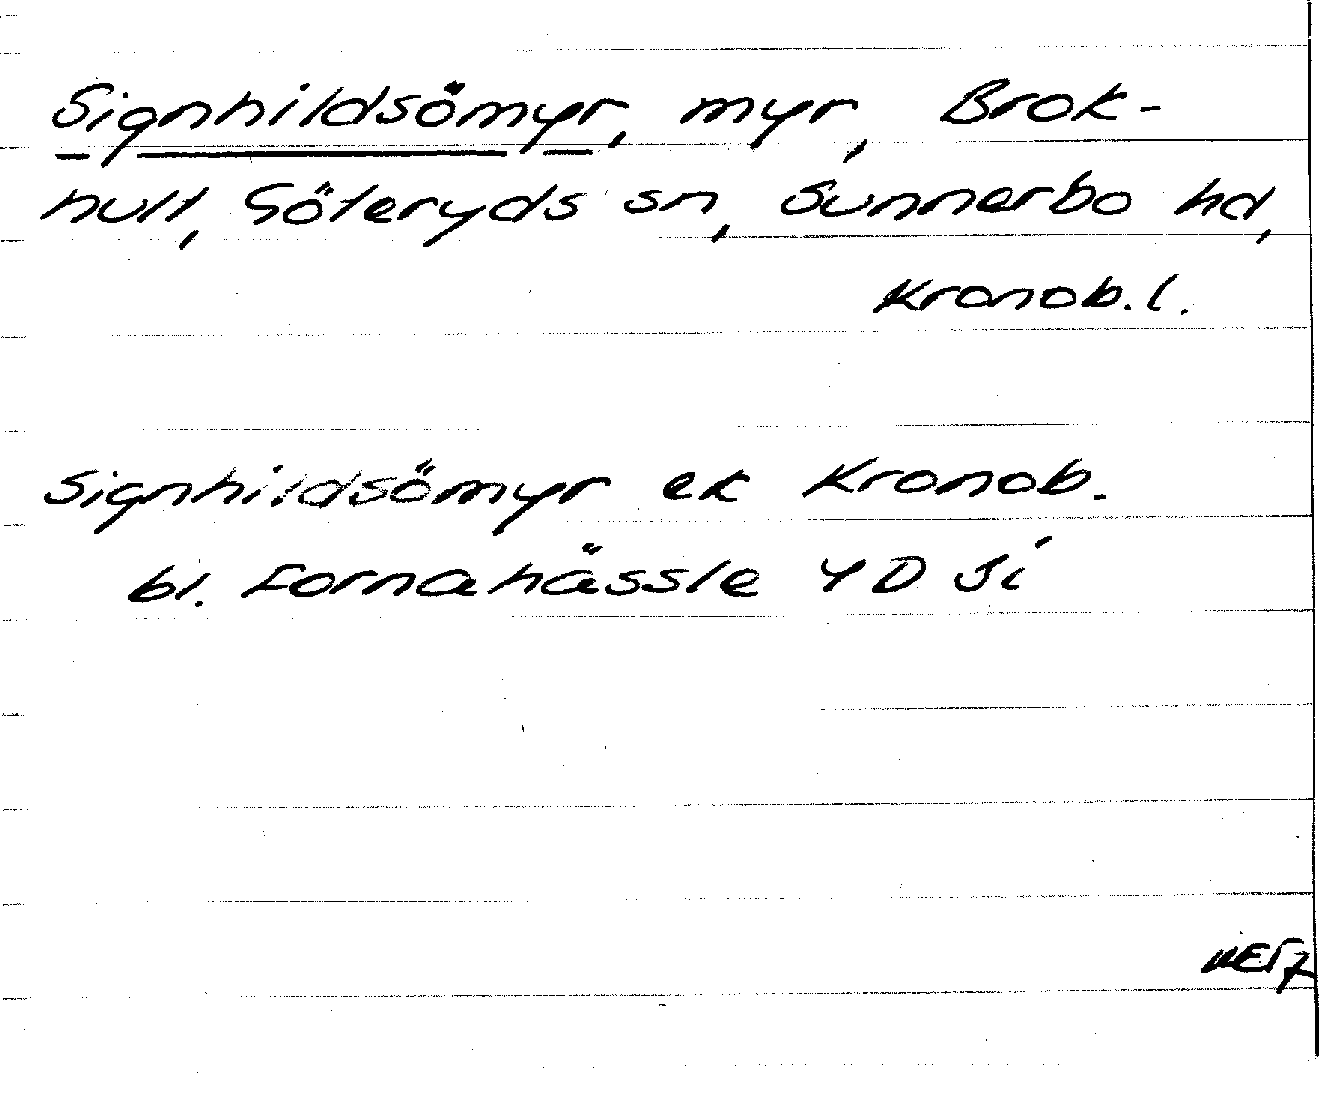 Signhildsömyr, myr, Brok-
hult, Göteryds sn, Sunnerbo hd,
Kronob. l.
Signhildsömyr ek Kronob.
bl. Fornahässle 4D 5i